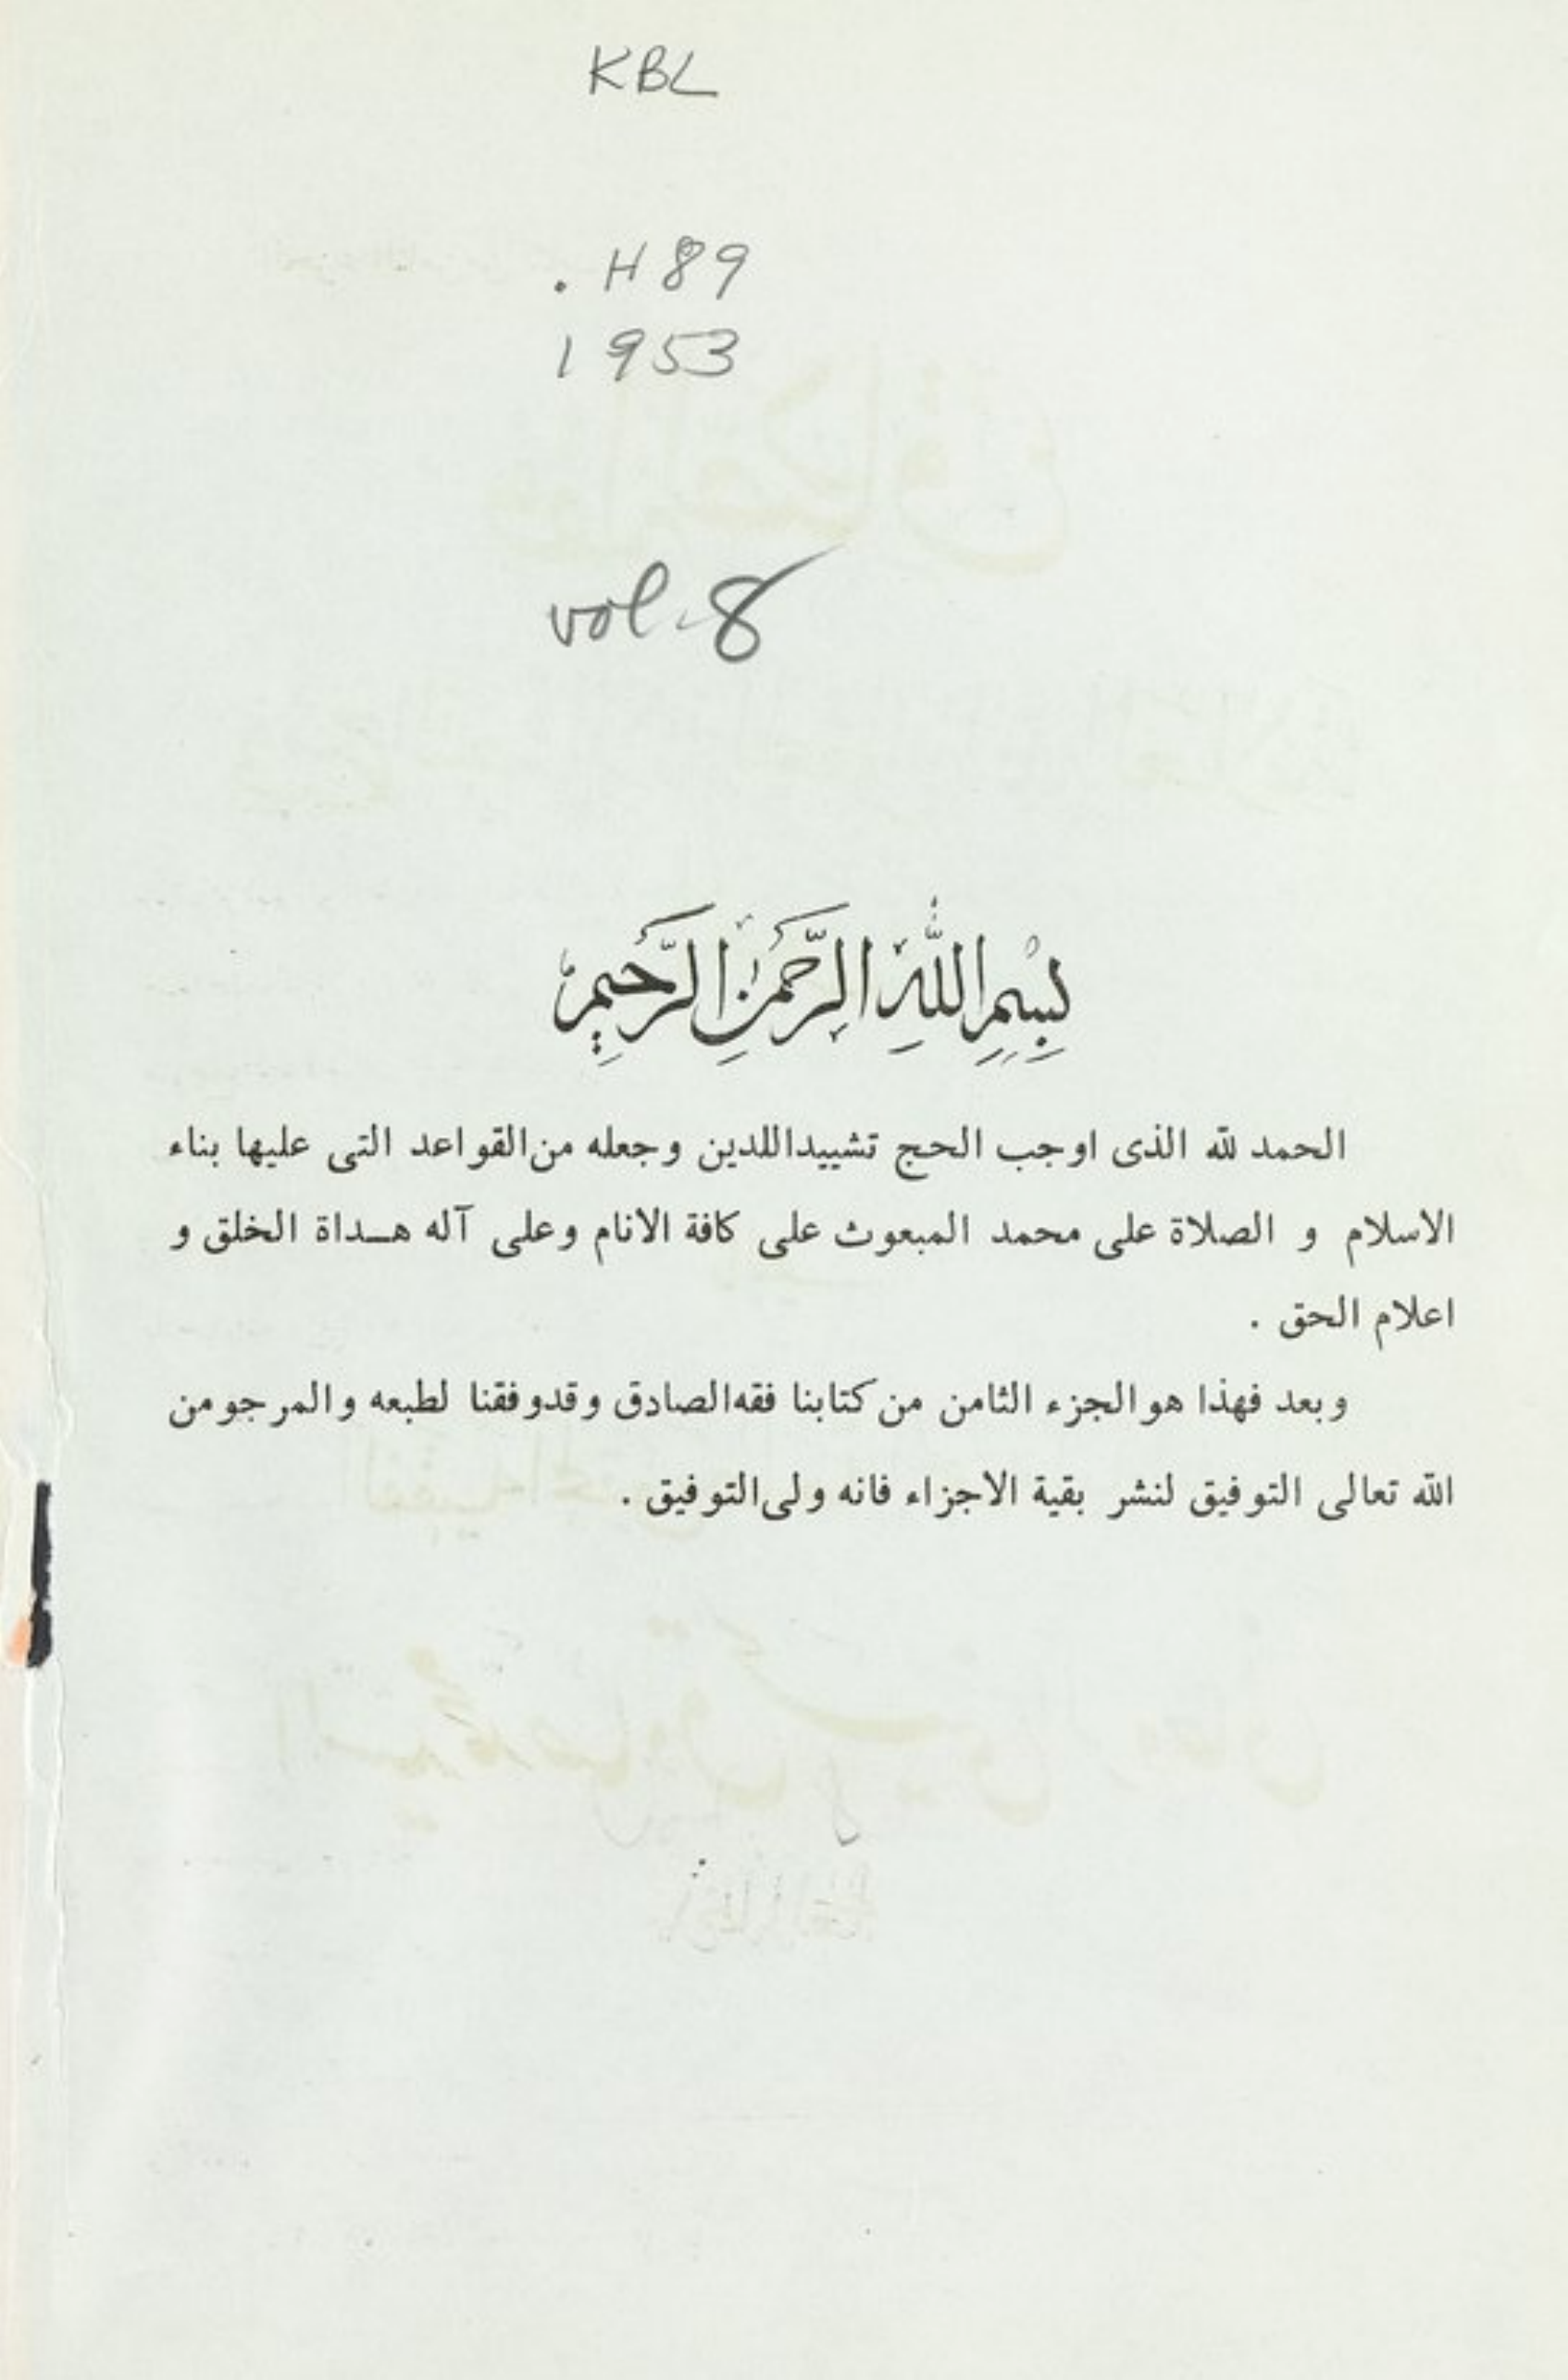 KBL
. H89
1953
vol. 8
بِسْمِ اللَّهِ الرَّحْمَنِ الرَّحِيمِ
الحمد لله الذى اوجب الحج تشييداللدين وجعله من القواعد التى عليها بناء
الاسلام و الصلاة على محمد المبعوث على كافة الانام وعلى آله هـداة الخلق و
اعلام الحق .
وبعد فهذا هو الجزء الثامن من كتابنا فقه الصادق وقدوفقنا لطبعه والمرجو من
الله تعالى التوفيق لنشر بقية الاجزاء فانه ولى التوفيق .